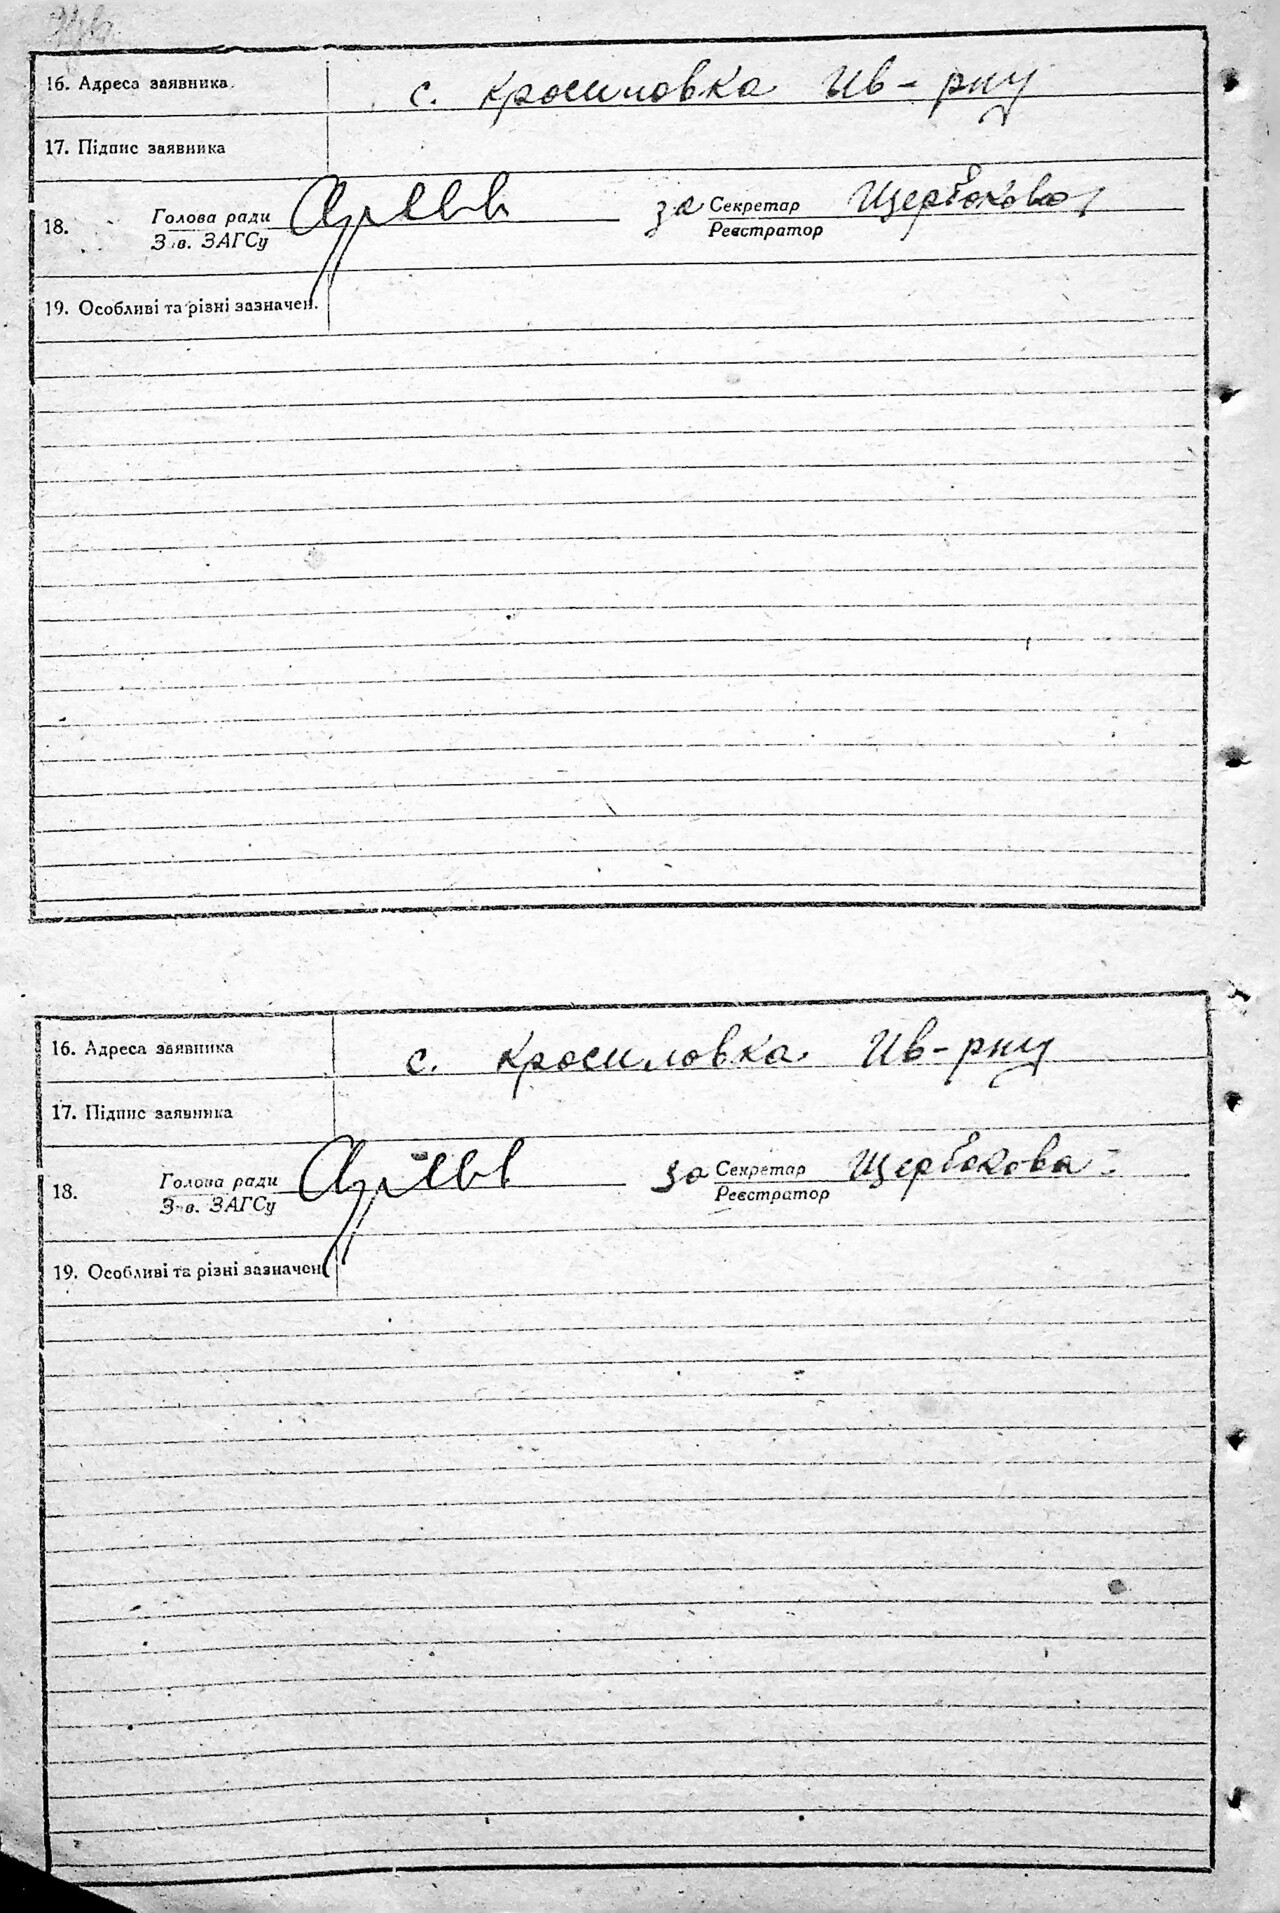 16. Адреса заявника. с. Красиловка Ив-рну
17. Підпис заявника
18. Голова ради за Секретар Щербакова
З.в. ЗАГСу Реєстратор
19. Особливі та різні зазначен.
16. Адреса заявника с. Красиловка Ив-рну
17. Підпис заявника
18. Голова ради за Секретар Щербакова
З.в. ЗАГСу Реєстратор
19. Особливі та різні зазначен